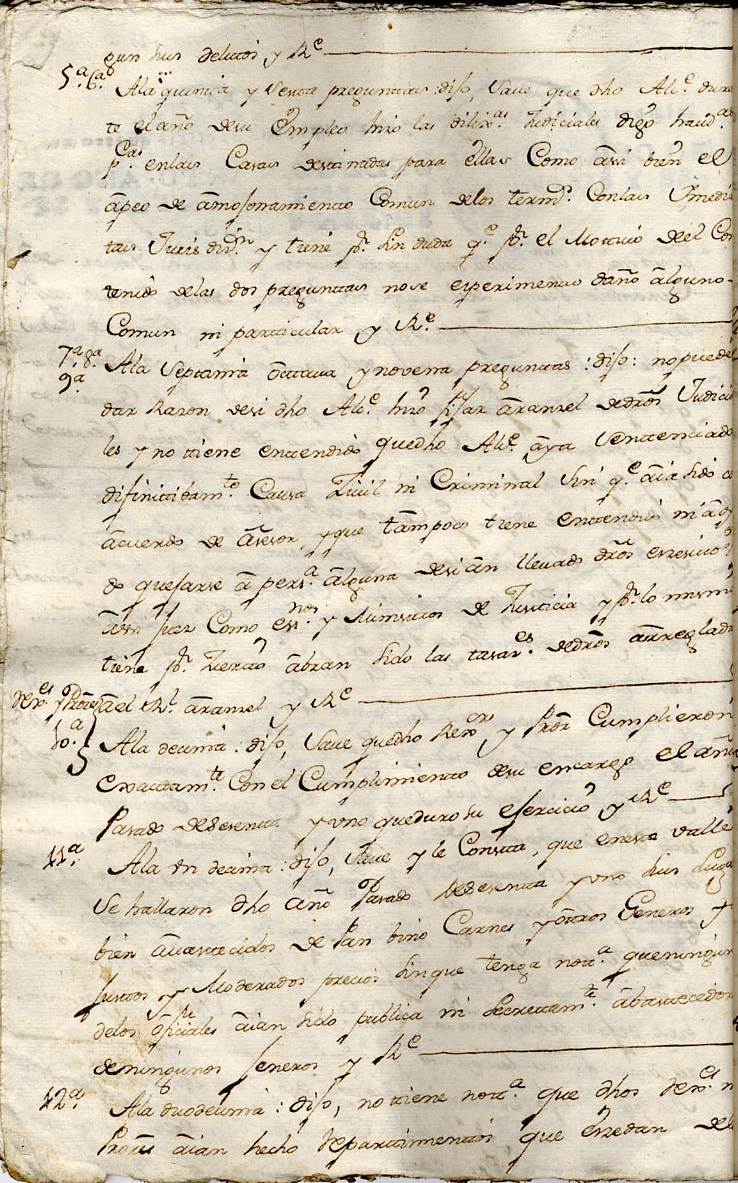 gun sus delitos y Re
5ª 6ª Ala quinta y sesta preguntas: dijo, save que dho Alce. duran
te el año de su Empleo hizo las dilixas. Judiciales digo haudas.
pcas. enlas Casas destinadas para ellas Como assi bien el
apeo de amojonamiento Comun delos termos. Con las Ynmedia
tas Jurisdines. y tiene pr. sin duda qe. pr. el Motivo del Con
tenido delas dos preguntas no se esperimento daño alguno
Comun ni particular y Re
7ª 8ª Ala septima octava y novena preguntas: dijo: no puede
9ª dar Razon de si dho Alce. hizo fijar aranzel de dros Judicia
les y no tiene entendido que dho Alce. aya sentenciado
difinitibamte. Causa Zivil ni Criminal sin qe. aia sido
acuerdo de Asesor, y que tampoco tiene entendido ni
do quejarse a persa. alguna de si an llevado dros
assi Juez Como essnos. y Ministros de Justicia y pr. lo mismo
tiene pr. Zierto abran sido las tasaes. de dros arreglada
ael Rl. aranzel y Re
10ª Ala decima: dijo, save que dho Rexor. y Pror. Cumplieron
exactamte. Con el Cumplimiento de su encargo el año
Pasado de sesenta y uno que duro su ejercicio y Re
11ª Ala undecima: dijo, save y le Consta, que en este valle
Se hallaron dho año Pasado de sesenta y uno sus Lugas
bien auastecidos de Pan bino Carnes y otros Generos y
Justos y Moderados precios sin que tenga nota. que ningun
delos ofiziales aian sido publica ni secretamte. abastecedor
de ningunos Jeneros y Re
12ª Ala duodecima: dijo, no tiene nota. que dhos Rexes. n
Prors aian hecho Repartimientos que exedan del